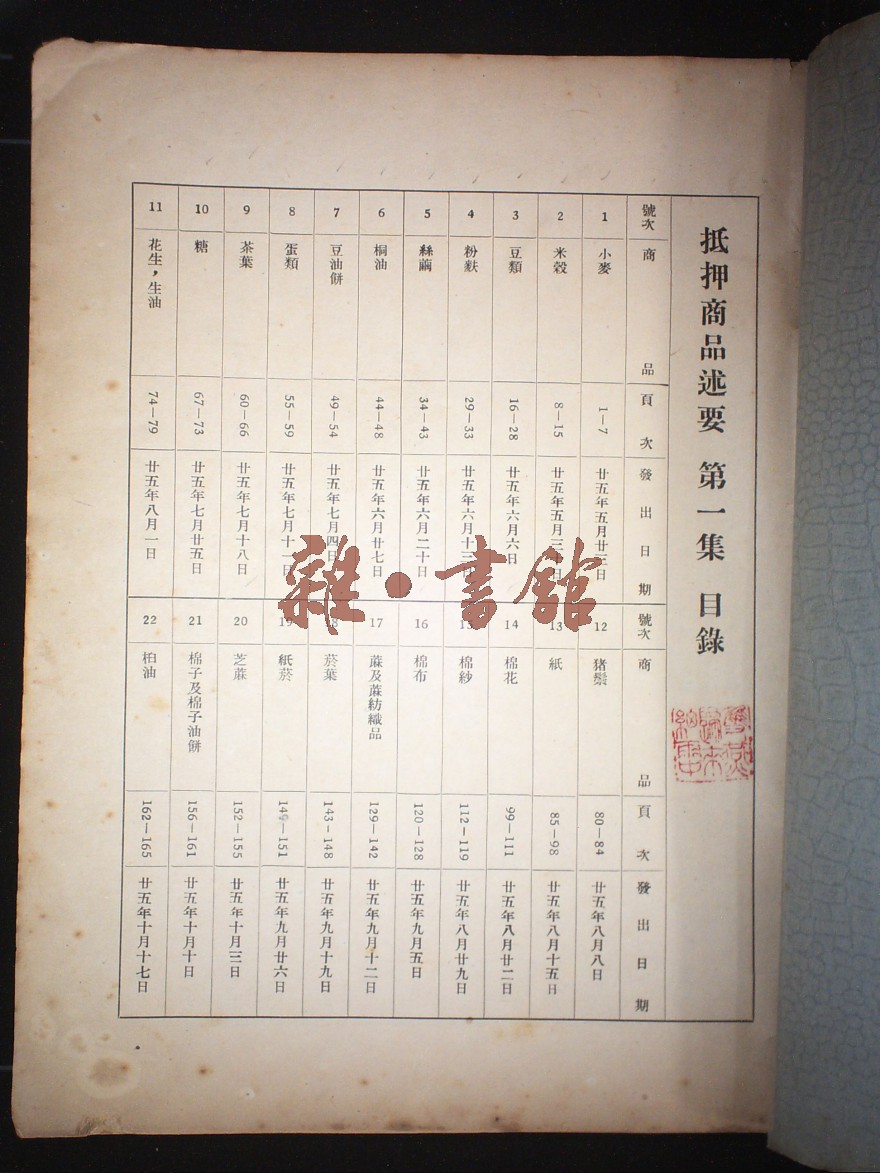 抵押商品述要 第一集 目錄
號次 商品 頁次 發出日期
1 小麥 1—7 廿五年五月廿三日
2 米穀 8—15 廿五年五月三日
3 豆類 16—28 廿五年六月六日
4 粉麩 29—33 廿五年六月十三日
5 絲繭 34—43 廿五年六月二十日
6 桐油 44—48 廿五年六月廿七日
7 豆油餅 49—54 廿五年七月四日
8 蛋類 55—59 廿五年七月十一日
9 茶葉 60—66 廿五年七月十八日
10 糖 67—73 廿五年七月廿五日
11 花生，生油 74—79 廿五年八月一日
號次 商品 頁次 發出日期
12 猪鬃 80—84 廿五年八月八日
13 紙 85—98 廿五年八月十五日
14 棉花 99—111 廿五年八月廿二日
15 棉紗 112—119 廿五年八月廿九日
16 棉布 120—128 廿五年九月五日
17 蔴及蔴紡織品 129—142 廿五年九月十二日
18 菸葉 143—148 廿五年九月十九日
19 紙菸 149—151 廿五年九月廿六日
20 芝蔴 152—155 廿五年十月三日
21 棉子及棉子油餅 156—161 廿五年十月十日
22 桕油 162—165 廿五年十月十七日
雜·書館